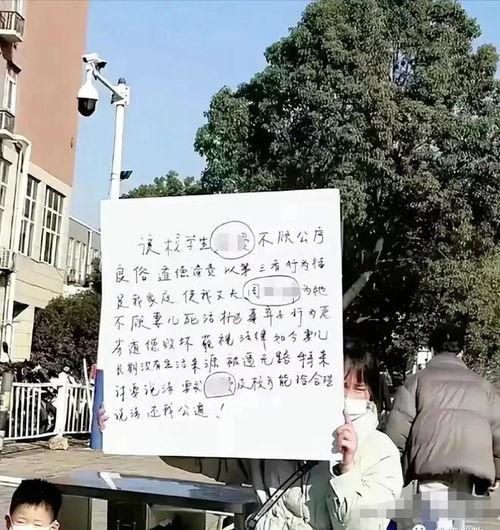 该校学生 不顾公序
良俗 道德 以第三者行为插
足我家庭 使我丈夫 周 为她
不顾妻儿死活 抛 弃子行为恶
劣道德败坏 藐视法律 如今妻儿
长期没有生活来源 被逼无路 特来
讨要说法 要求 及校方能给合理
说法 还我公道！